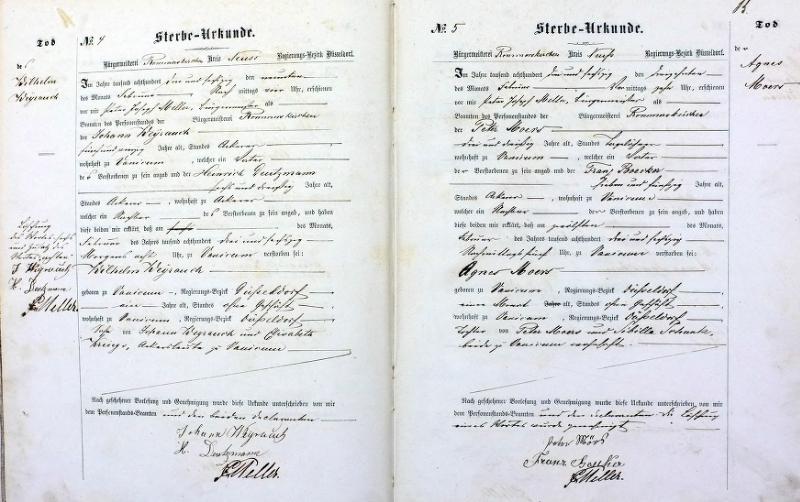 Tod
No. 4
Sterbe-Urkunde.
Bürgermeisterei Rommerskirchen Kreis Neuss Regierungs-Bezirk Düsseldorf.
des
Wilhelm
Weyrauch
Im Jahre tausend achthundert drei und sechszig den neunten
des Monats Februar Nach mittags Uhr, erschienen
vor mir Peter Joseph Meller, Bürgermeister als
Beamten des Personenstands der Bürgermeisterei Rommerskirchen
der Johann Weyrauch
fünf und Jahre alt, Standes Ackerer
wohnhaft zu Vanicum, welcher ein Vater
des Verstorbenen zu sein angab und der Heinrich Deutzmann
sechs und dreissig Jahre alt,
Standes Ackerer, wohnhaft zu Vanicum
welcher ein Nachbar des Verstorbenen zu sein angab, und haben
diese beiden mir erklärt, daß am des Monats,
Februar des Jahres tausend achthundert drei und sechszig
Morgens acht Uhr, zu Vanicum verstorben sei:
Wilhelm Weyrauch
geboren zu Vanicum, Regierungs-Bezirk Düsseldorf
ein Jahre alt, Standes ohne Geschäft
wohnhaft zu Vanicum, Regierungs-Bezirk Düsseldorf
Sohn von Johann Weyrauch und Elisabeth
Ackersleute zu Vanicum
Löschung
des Wortes
und
J Weyrauch
H. Deutzmann
P Meller.
Nach geschehener Vorlesung und Genehmigung wurde diese Urkunde unterschrieben von mir
dem Personenstands-Beamten und den beiden Declaranten
Johann Weyrauch
H. Deutzmann
P Meller.
13.
Tod
No. 5
Sterbe-Urkunde.
Bürgermeisterei Rommerskirchen Kreis Neuss Regierungs-Bezirk Düsseldorf.
der
Agnes
Moers
Im Jahre tausend achthundert drei und sechszig den dreizehnten
des Monats Februar Vor mittags zehn Uhr, erschienen
vor mir Peter Joseph Meller, Bürgermeister als
Beamten des Personenstands der Bürgermeisterei Rommerskirchen
der Peter Moers
drei und dreissig Jahre alt, Standes Tagelöhner
wohnhaft zu Vanicum, welcher ein Vater
der Verstorbenen zu sein angab und der Franz
sieben und fünfzig Jahre alt,
Standes Ackerer, wohnhaft zu Vanicum
welcher ein Nachbar der Verstorbenen zu sein angab, und haben
diese beiden mir erklärt, daß am zwölften des Monats,
Februar des Jahres tausend achthundert drei und sechszig
Nachmittags fünf Uhr, zu Vanicum verstorben sei:
Agnes Moers
geboren zu Vanicum, Regierungs-Bezirk Düsseldorf
einen Monat Jahre alt, Standes ohne Geschäft
wohnhaft zu Vanicum, Regierungs-Bezirk Düsseldorf
Tochter von Peter Moers und Sibilla
beide zu Vanicum wohnhaft.
Nach geschehener Vorlesung und Genehmigung wurde diese Urkunde unterschrieben, von mir
dem Personenstands-Beamten und den Declaranten die Löschung
eines Wortes wurde genehmigt
Peter Mörs
Franz
P Meller.